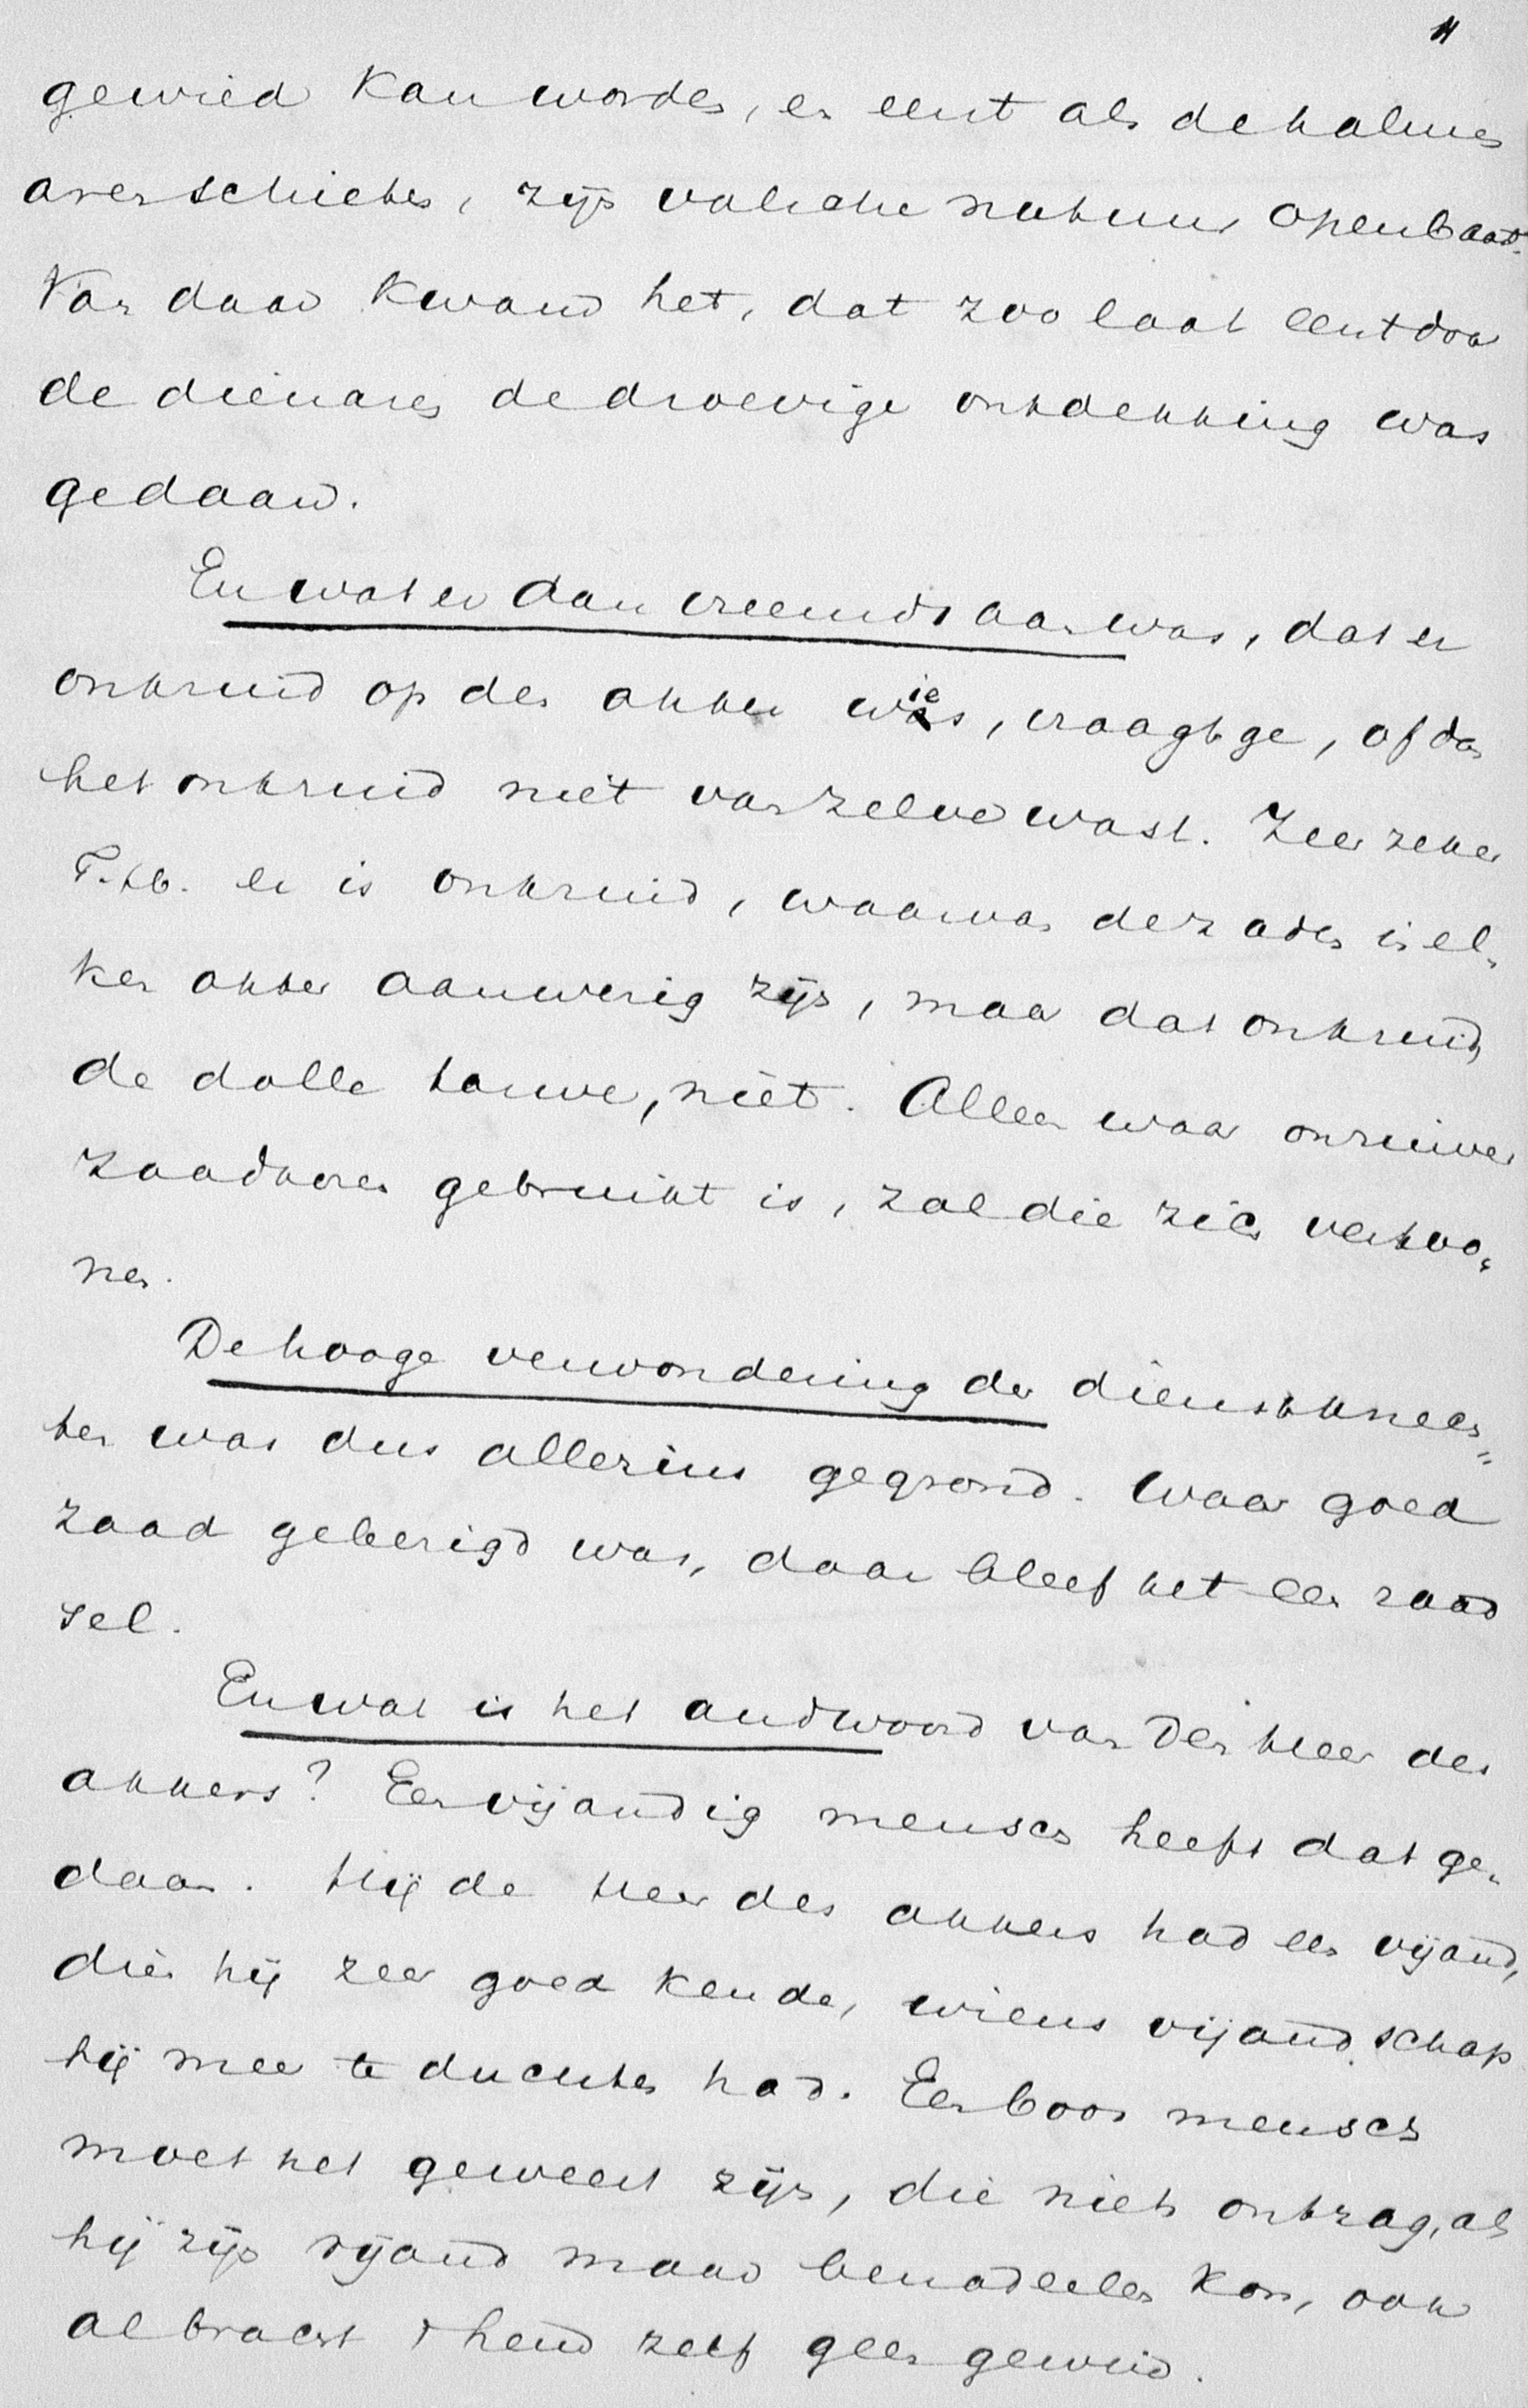 11
gewied kan worden, en eerst als de halmen
overschieten, zijn valsche natuur openbaart.
Van daar kwam het, dat zoo laat eerst door
de dienaren de droevige ontdekking was
gedaan.
En wat er dan vreemds aan was, dat er
onkruid op den akker wies, vraagt ge, of dan
het onkruid niet van zelve wast. Zeer zeker
T.H. er is onkruid, waarvan de zaden in el-
ken akker aanwezig zijn, maar dat onkruid,
de dolle tarwe, niet. Alleen waar onreiner
zaadkoren gebruikt is, zal die zich vertoo-
nen.
De hooge verwondering der dienstknech=
ten was dus allerzins gegrond. Waar goed
zaad gebezigd was, daar bleef het een raad
sel.
En wat is het andwoord van den heer des
akkers? Een vijandig mensch heeft dat ge-
daan. Hij de heer des akkers had een vijand,
dien hij zeer goed kende, wiens vijandschap
hij mee te duchten had. Een boos mensch
moet het geweest zijn, die niets ontzag, als
hij zijn vijand maar benadeelen kon, ook
al bracht 't hem zelf geen gewin.